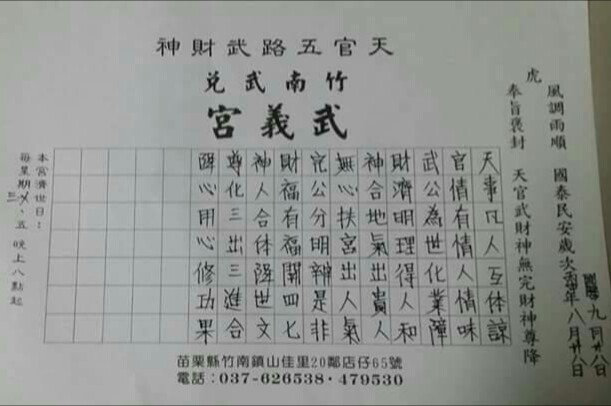 天官五路武財神
竹南武兌
武義宮
國曆九月廿八日
風調雨順 國泰民安歲次 年八月廿八日
虎
奉旨褒封 天官武財神無完財神尊降
天事凡人互体諒
官情有情人情味
武公為世化業障
財濟明理得人和
神合地氣出貴人
無心扶宮出人氣
完公分明辨是非
財福有福開四七
神人合体降世文
尊化三出三進合
降心用心修功果
本宮濟世日：
每星期三、五 晚上八點起
苗栗縣竹南鎮山佳里20鄰店仔65號
電話：037-626538·479530